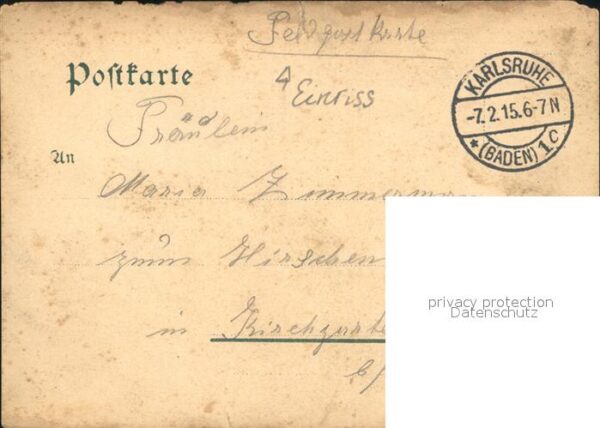 Feldpostkarte
Postkarte
4
Einriss
KARLSRUHE
-7.2.15.6-7N
* (BADEN) 1c
Fräulein
An
Maria Zimmerma
zum Hirschen
in Kirchgarte
b/
privacy protection
Datenschutz